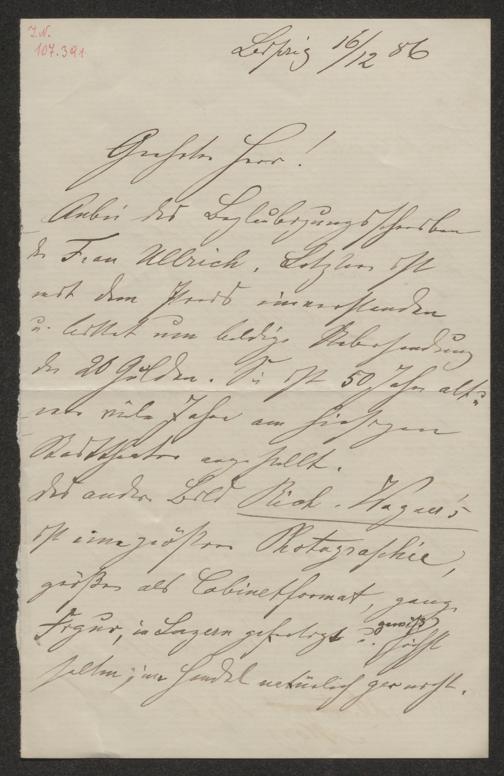 I.N.
107.391
Leipzig 16/12 86
Geehrter Herr!
Anbei das Beglaubigungsschreiben
der Frau Ullrich. Letztere ist
mit dem Preis einverstanden
u. bittet um baldige Übersendung
der 20 Gulden. Sie ist 50 Jahre alt u.
war viele Jahre am hiesigen
Stadttheater angestellt.
Das andere Bild Rich. Wagner's
ist eine größere Photographie,
größer als Cabinetformat, ganze
Figur, in Luzern gefertigt u. gewiß höchst
selten; im Handel natürlich gar nicht.